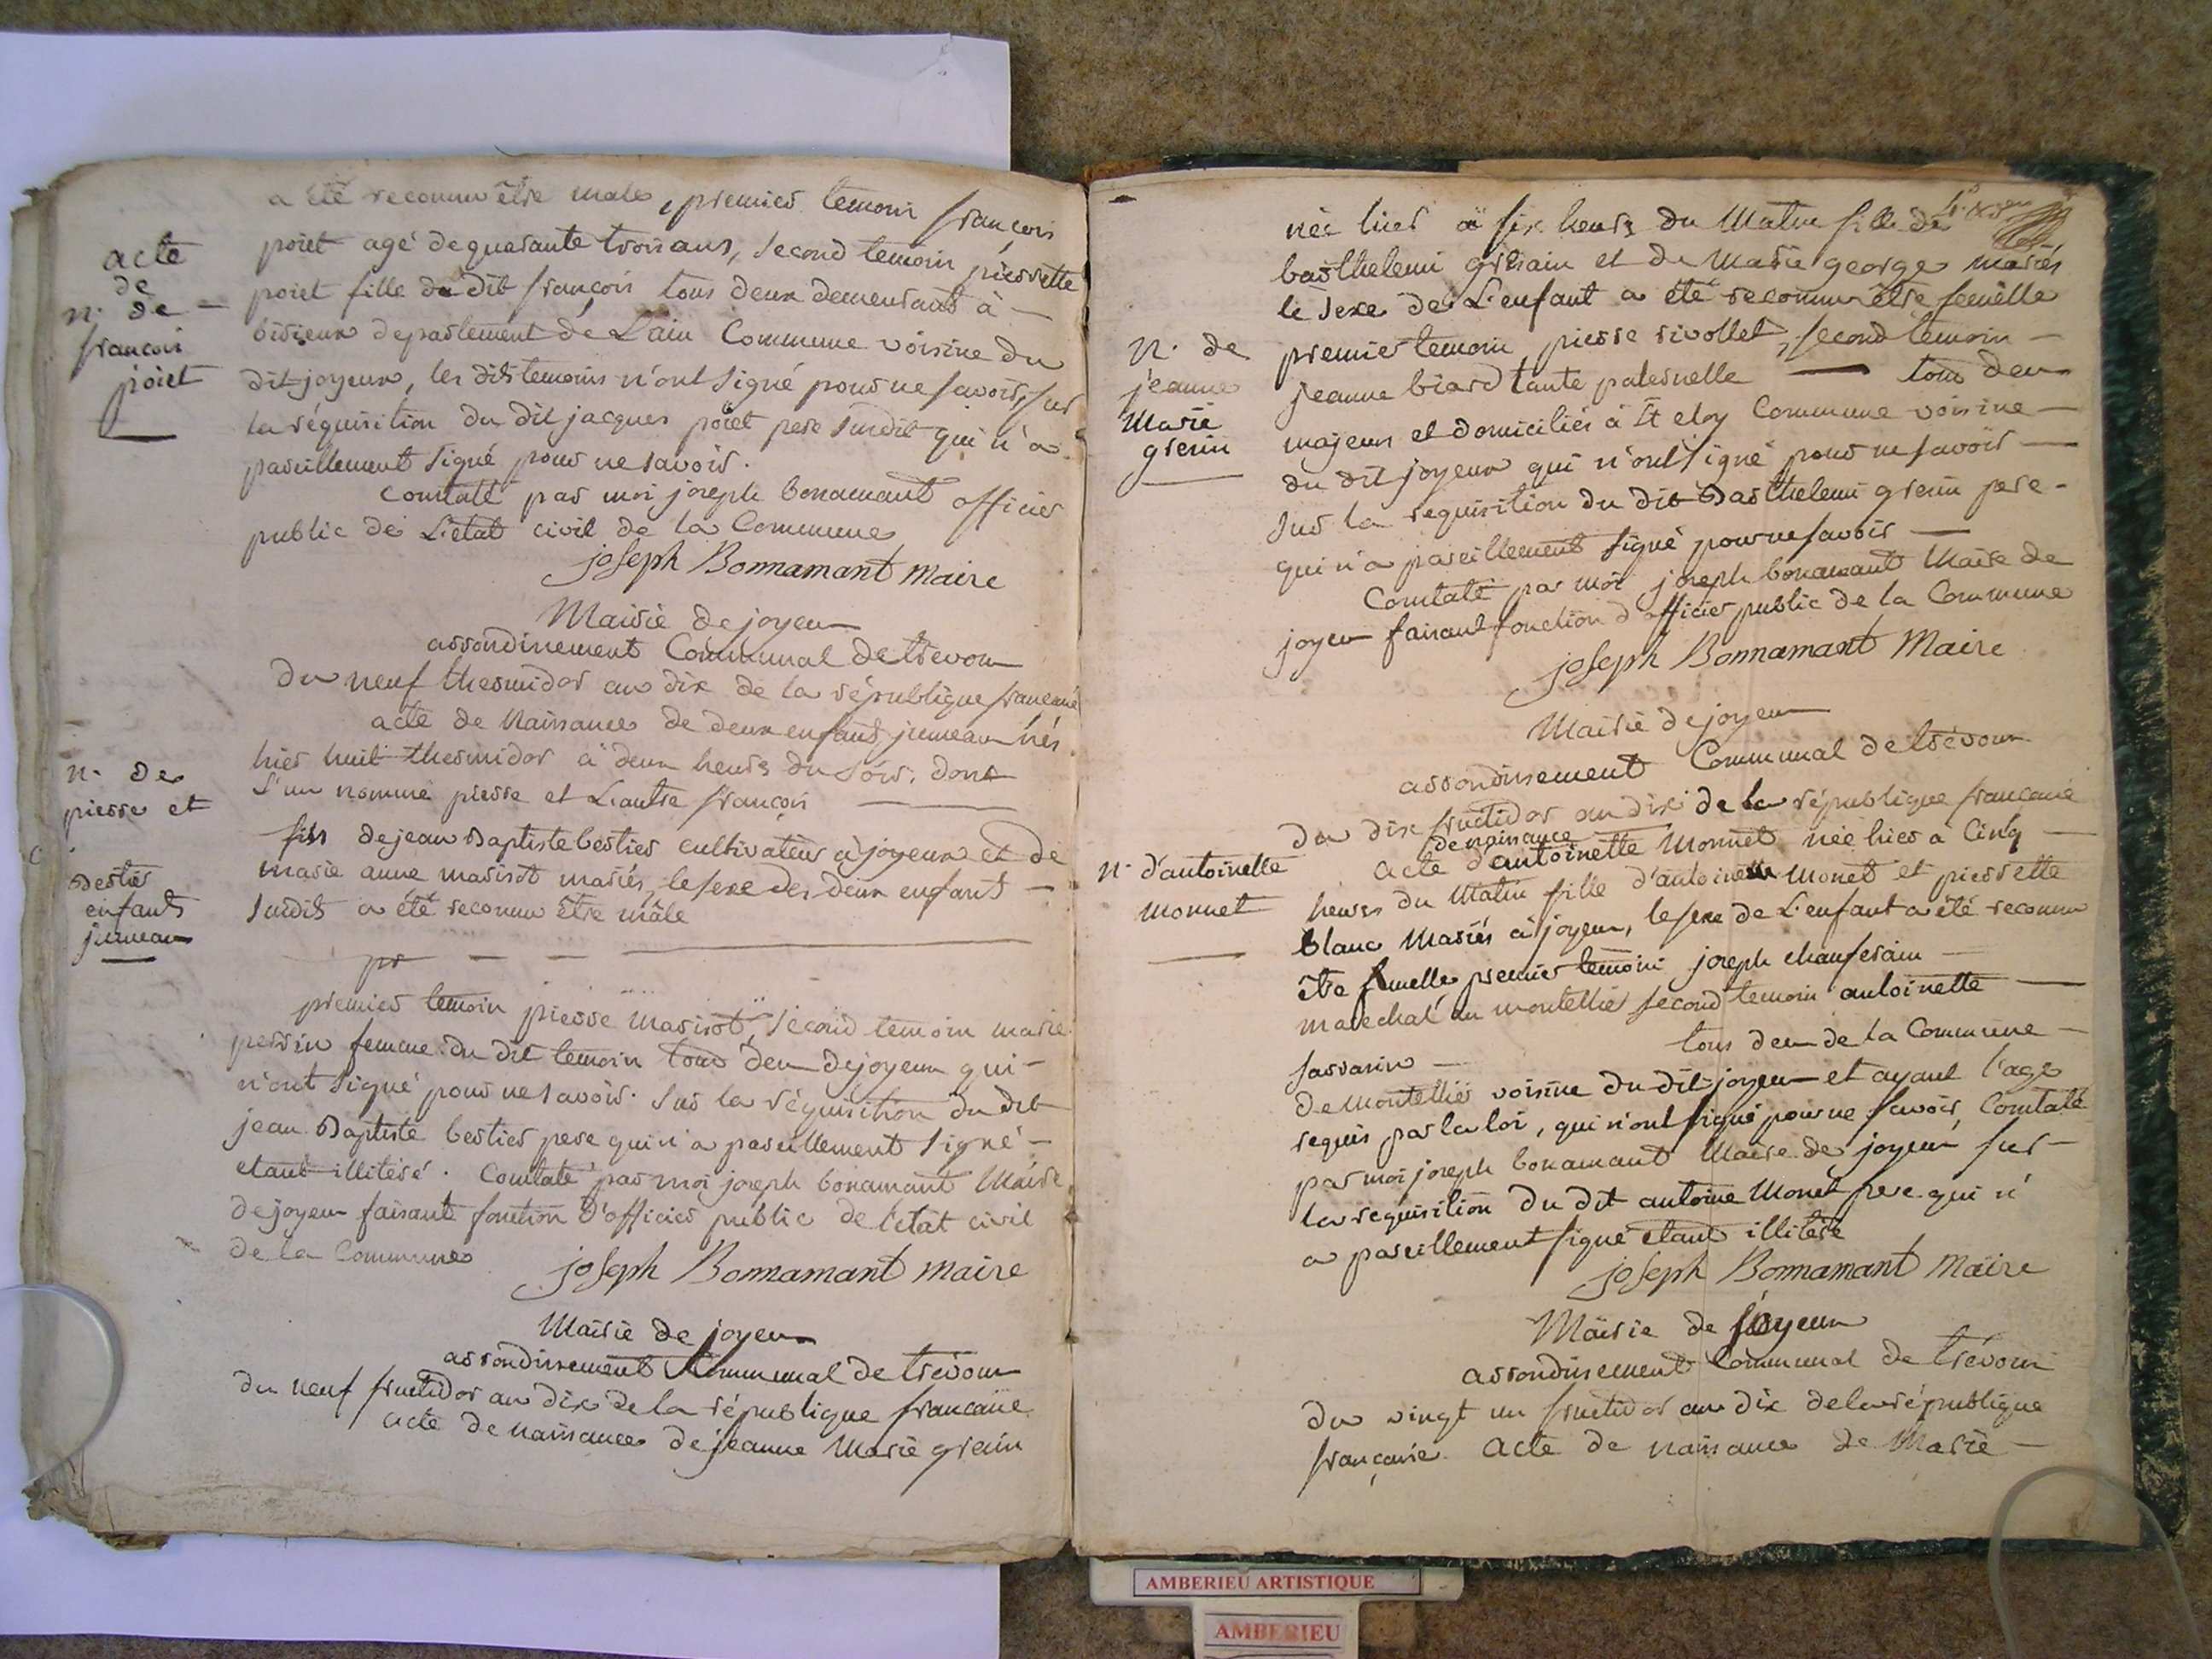 a été reconnu être male, premier temoin françois
poiet agé de quarante trois ans, second temoin pierrette
poiet fille du dit françois tous deux demeurants à —
birieux departement de L'ain Commune voisine du
dit joyeux, les dits temoins n'ont signé pour ne savoir, sur
la réquisition du dit jacques poiet pere susdit qui n'a
pareillement signé pour ne savoir.
constaté par moi joseph bonamant officier
public de L'état civil de la Commune
joseph Bonnamant maire
acte
de
n. de —
françois
poiet
Mairie de joyeux
arrondinement Communal de trevoux
du neuf thermidor an dix de la république francaise
acte de Naissance de deux enfants jumeaux nés
hier huit thermidor à deux heures du soir, dont
l'un nommé pierre et L'autre françois —
fils de jean Baptiste bertier cultivateur à joyeux et de
marie anne marirot mariés, le sexe des deux enfant —
susdits a été reconnu être mâle
pr — — —
premier temoin pierre marirot, second temoin marie
perrin femme du dit temoin tous deux de joyeux qui —
n'ont signé pour ne savoir. sur la réquisition du dit
jean Baptiste bertier pere qui n'a pareillement signé —
etant illitéré. Constaté par moi joseph bonamant Maire
de joyeux faisant fonction d'officier public de l'état civil
de la Commune
joseph Bonnamant maire
n. de
pierre et
bertier
enfants
jumeaux
Mairie de joyeux
arrondissement Communal de trévoux
du neuf fructidor an dix de la république francaise
acte de naissance de jeanne Marie grenin
née hier à six heures du Matin fille de
barthelemi grenin et de Marie george mariés
le sexe de L'enfant a été reconnu être femelle
premier temoin pierre rivollet, second temoin —
jeanne biard tante paternelle — tous deux
majeurs et domiciliés à St eloy Commune voisine —
du dit joyeux qui n'ont signé pour ne savoir —
sur la requisition du dit Barthelemi grenin pere —
qui n'a pareillement signé pour ne savoir —
Constaté par moi joseph bonamant Maire de
joyeux faisant fonction d'officier public de la Commune
joseph Bonnamant Maire
n. de
jeanne
Marie
grenin
Mairie de joyeux
arrondissement Communal de trévoux
du dix fructidor an dix de la république francaise
de naissance
acte d'antoinette Monnet née hier à Cinq —
heures du Matin fille d'antoine Monet et pierrette
blanc Mariés à joyeux, le sexe de L'enfant a été reconnu
être femelle, premier temoin joseph chanferain —
marechal au montellier second temoin antoinette —
sarrasin — tous deux de la Commune —
de montellier voisine du dit joyeux et ayant l'age
requis par la loi, qui n'ont signé pour ne savoir, Constaté
par moi joseph bonamant Maire de joyeux sur —
la requisition du dit antoine Monet pere qui n'
a pareillement signé etant illitéré
joseph Bonnamant Maire
n. d'antoinette
monnet
Mairie de joyeux
arrondissement Communal de trévoux
du vingt un fructidor an dix de la république
française. acte de naissance de Marie —
AMBERIEU ARTISTIQUE
AMBERIEU